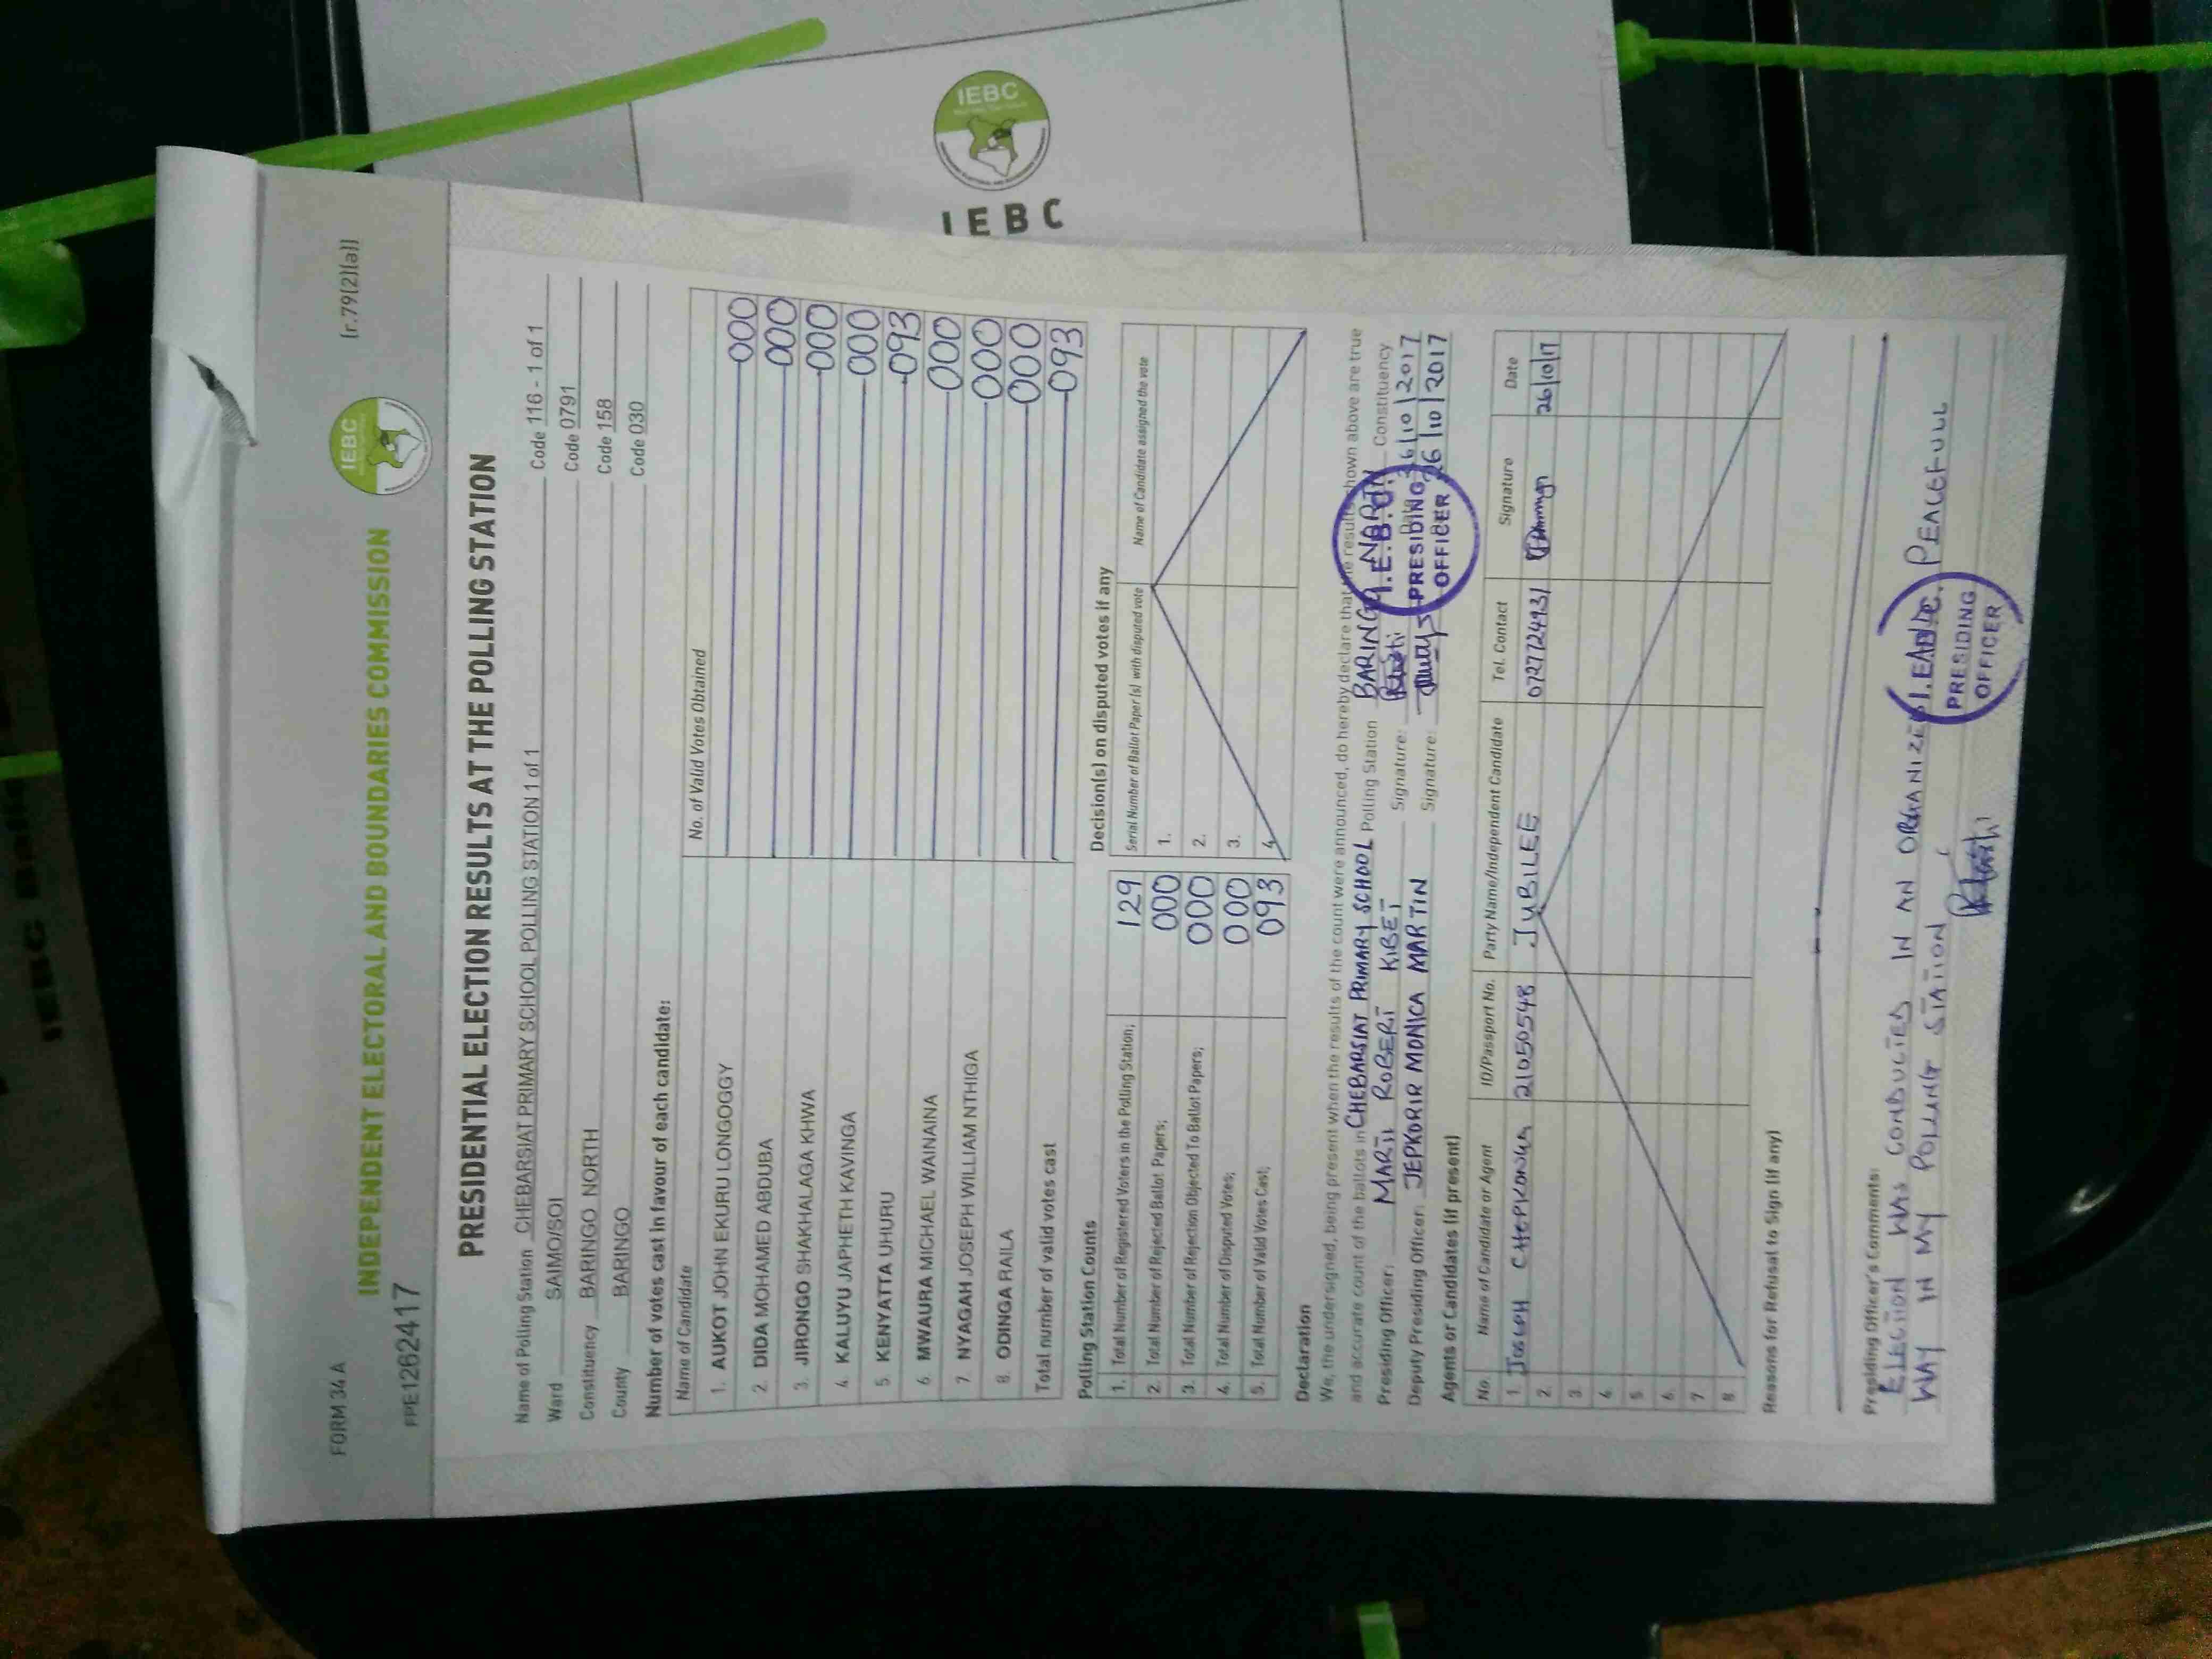 IEBC
IEBC
FORM 34A
(r.79(2)(a))
FPE1262417
IEBC
INDEPENDENT ELECTORAL AND BOUNDARIES COMMISSION
PRESIDENTIAL ELECTION RESULTS AT THE POLLING STATION
Name of Polling Station CHEBARSIAT PRIMARY SCHOOL POLLING STATION 1 of 1 Code 116 - 1 of 1
Ward SAIMO/SOI Code 0791
Constituency BARINGO NORTH Code 158
County BARINGO Code 030
Number of votes cast in favour of each candidate:
Name of Candidate No. of Valid Votes Obtained
1. AUKOT JOHN EKURU LONGOGGY 000
2. DIDA MOHAMED ABDUBA 000
3. JIRONGO SHAKHALAGA KHWA 000
4. KALUYU JAPHETH KAVINGA 000
5. KENYATTA UHURU 093
6. MWAURA MICHAEL WAINAINA 000
7. NYAGAH JOSEPH WILLIAM NTHIGA 000
8. ODINGA RAILA 000
Total number of valid votes cast 093
Polling Station Counts
1. Total Number of Registered Voters in the Polling Station; 129
2. Total Number of Rejected Ballot Papers; 000
3. Total Number of Rejection Objected To Ballot Papers; 000
4. Total Number of Disputed Votes; 000
5. Total Number of Valid Votes Cast; 093
Decision(s) on disputed votes if any
Serial Number of Ballot Paper (s) with disputed vote Name of Candidate assigned the vote
1.
2.
3.
4.
Declaration
We, the undersigned, being present when the results of the count were announced, do hereby declare that the results shown above are true
and accurate count of the ballots in CHEBARSIAT PRIMARY SCHOOL Polling Station BARINGO NORTH Constituency
Presiding Officer: MARTI ROBERT KIBET Signature: Date 26/10/2017
Deputy Presiding Officer: JEPKORIR MONICA MARTIN Signature: 26/10/2017
I.E.B.C.
PRESIDING
OFFICER
Agents or Candidates (if present)
No. Name of Candidate or Agent ID/Passport No. Party Name/Independent Candidate Tel. Contact Signature Date
1. JOSEPH CHEPKONGA 21050548 JUBILEE 0727724931 26/10/17
2.
3.
4.
5.
6.
7.
8.
Reasons for Refusal to Sign (if any)
Presiding Officer's Comments:
ELECTION WAS CONDUCTED IN AN ORGANIZED AND PEACEFULL
WAY IN MY POLLING STATION
PRESIDING
OFFICER